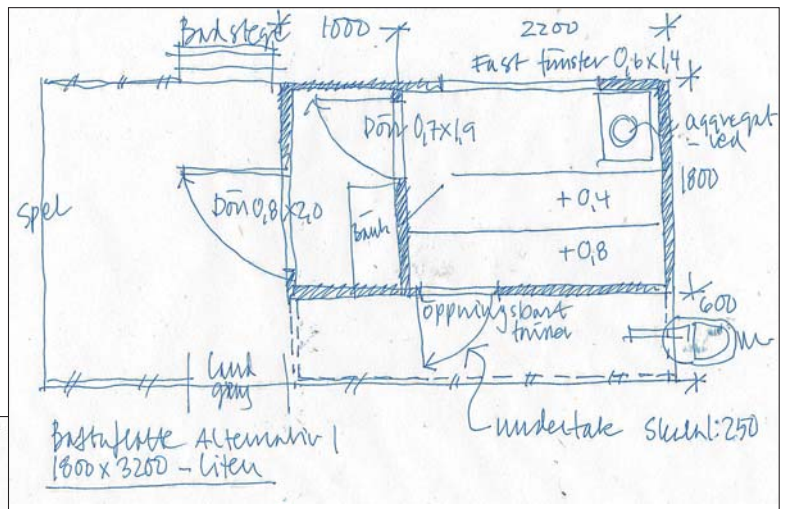 Badstege
1000
2200
Fast fönster 0,6x1,4
Dörr 0,7x1,9
aggregat
- ved
1800
Spel
Dörr 0,8x2,0
Bänk
+0,4
+0,8
600
öppningsbart
fönster
Land
gång
undertak
Skala 1:250
Bastuflotte Alternativ 1
1800 x 3200 - Liten